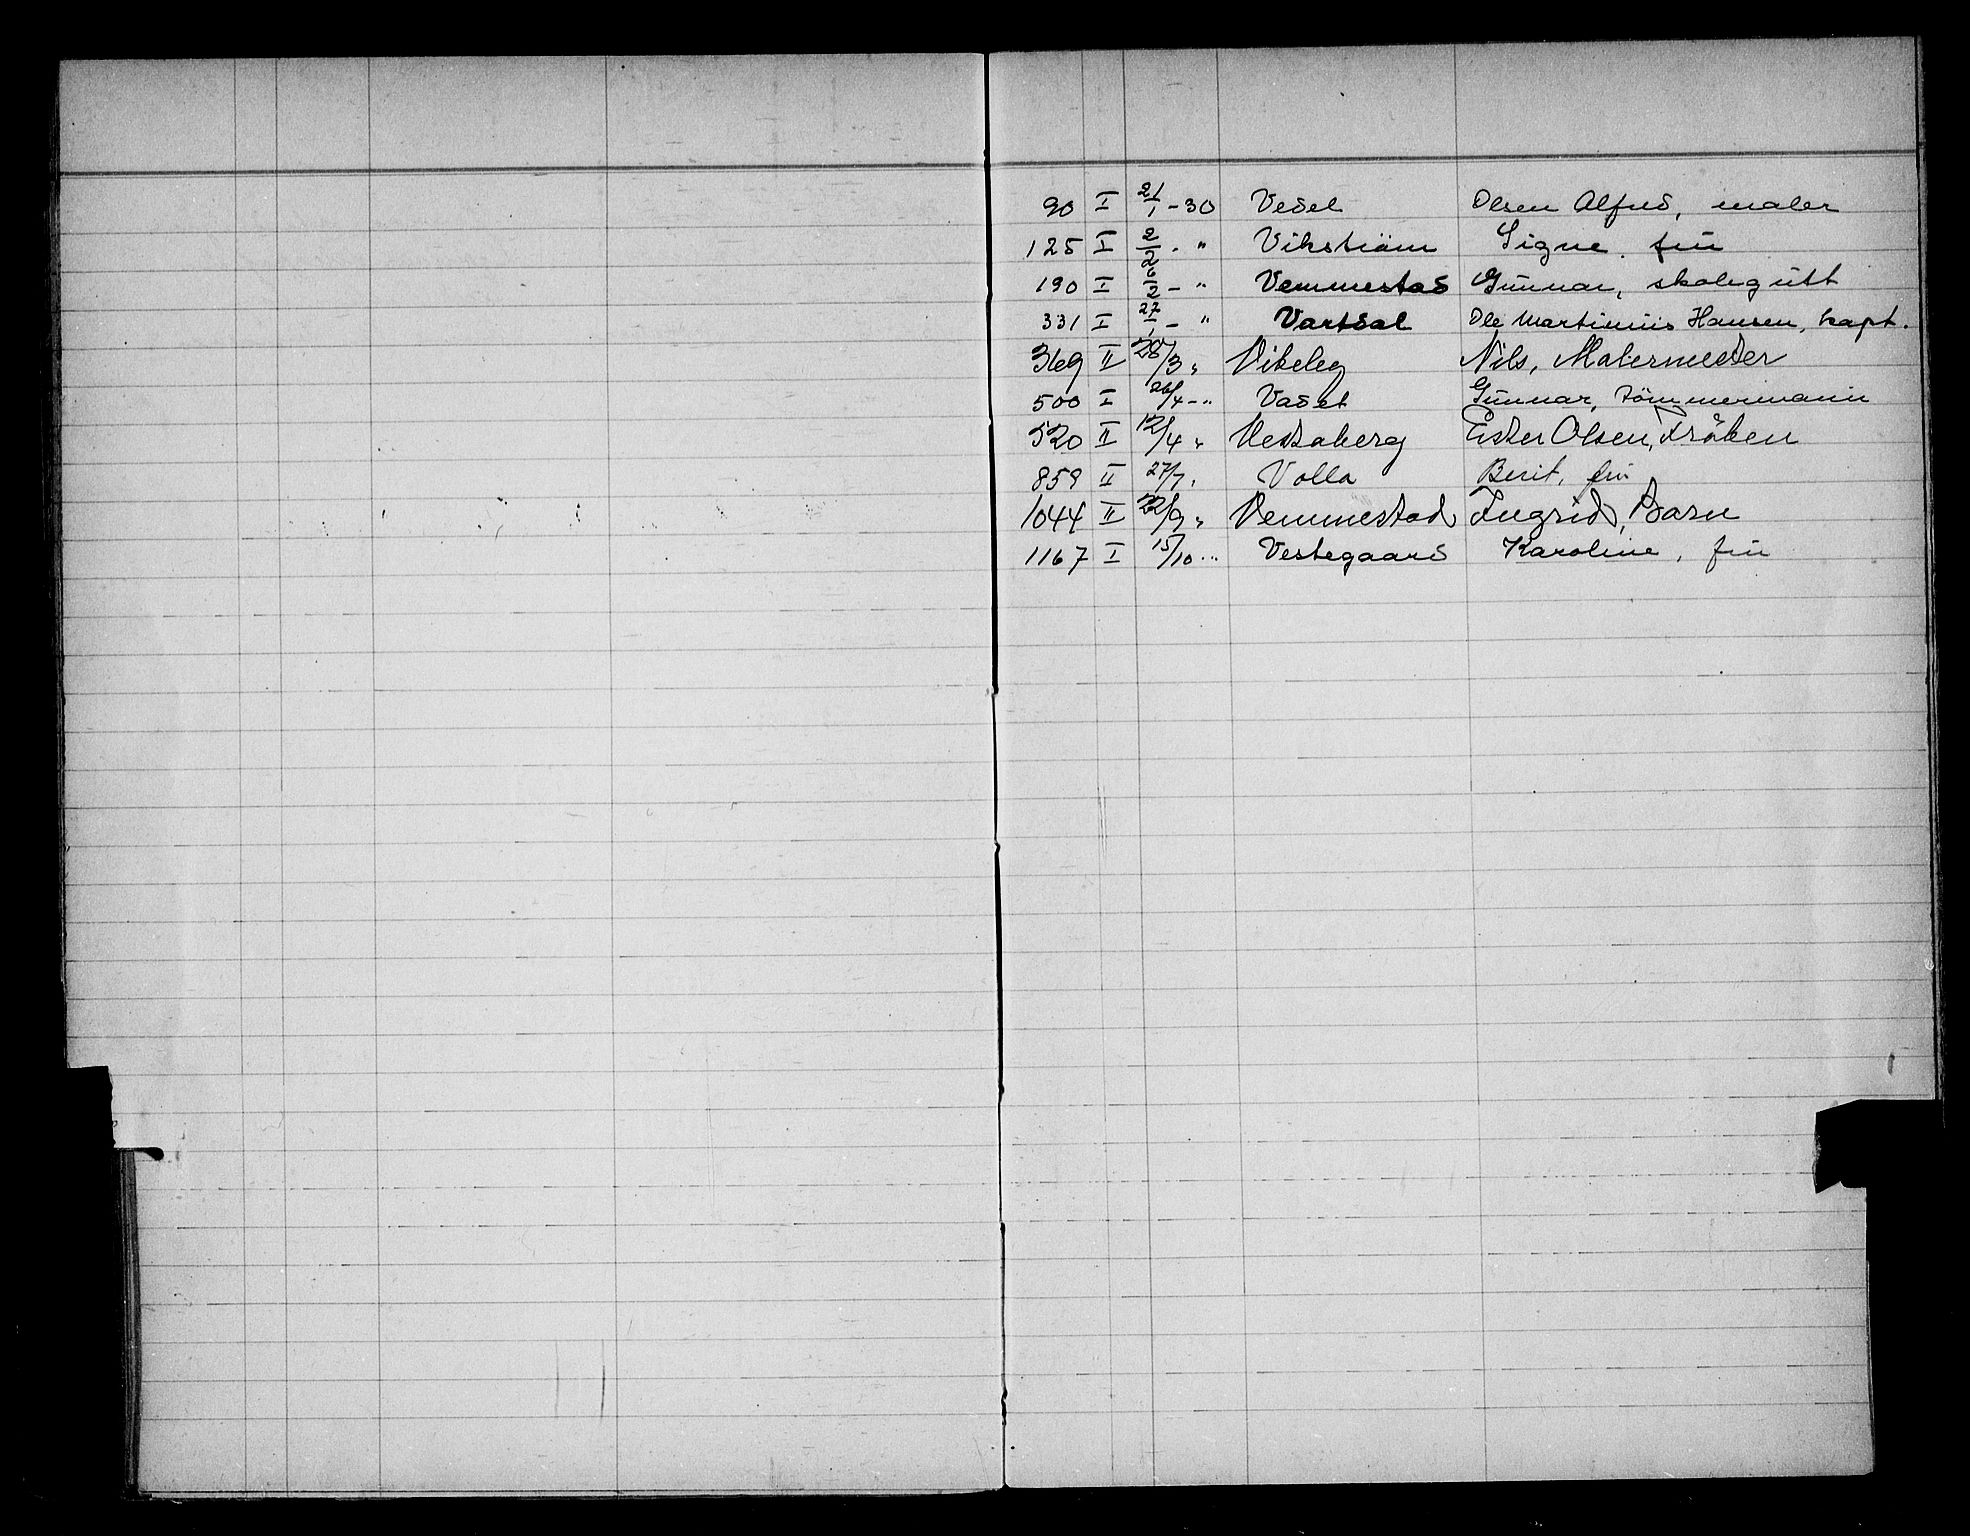 90 I 21/1 - 30 Vedel Olsen Alfred, maler
125 I 2/2 - " Vikström Signe. frü
190 I 6/2 - " Vemmestad Gunnar, skolegutt
331 I 27/1 - " Vartdal Ole Martinius Hansen, kapt.
369 II 28/3 " Vikeleg Nils, Malermester
500 I 26/4 - " Vadet Gunnar, tömmermann
520 II 12/4 " Vestaberg Ester Olsen, Fröken
859 II 27/7 " Volla Berit, frü
1044 II 22/9 " Vemmestad Ingrid, Barn
1167 I 15/10 " Vestegaard Karoline, frü